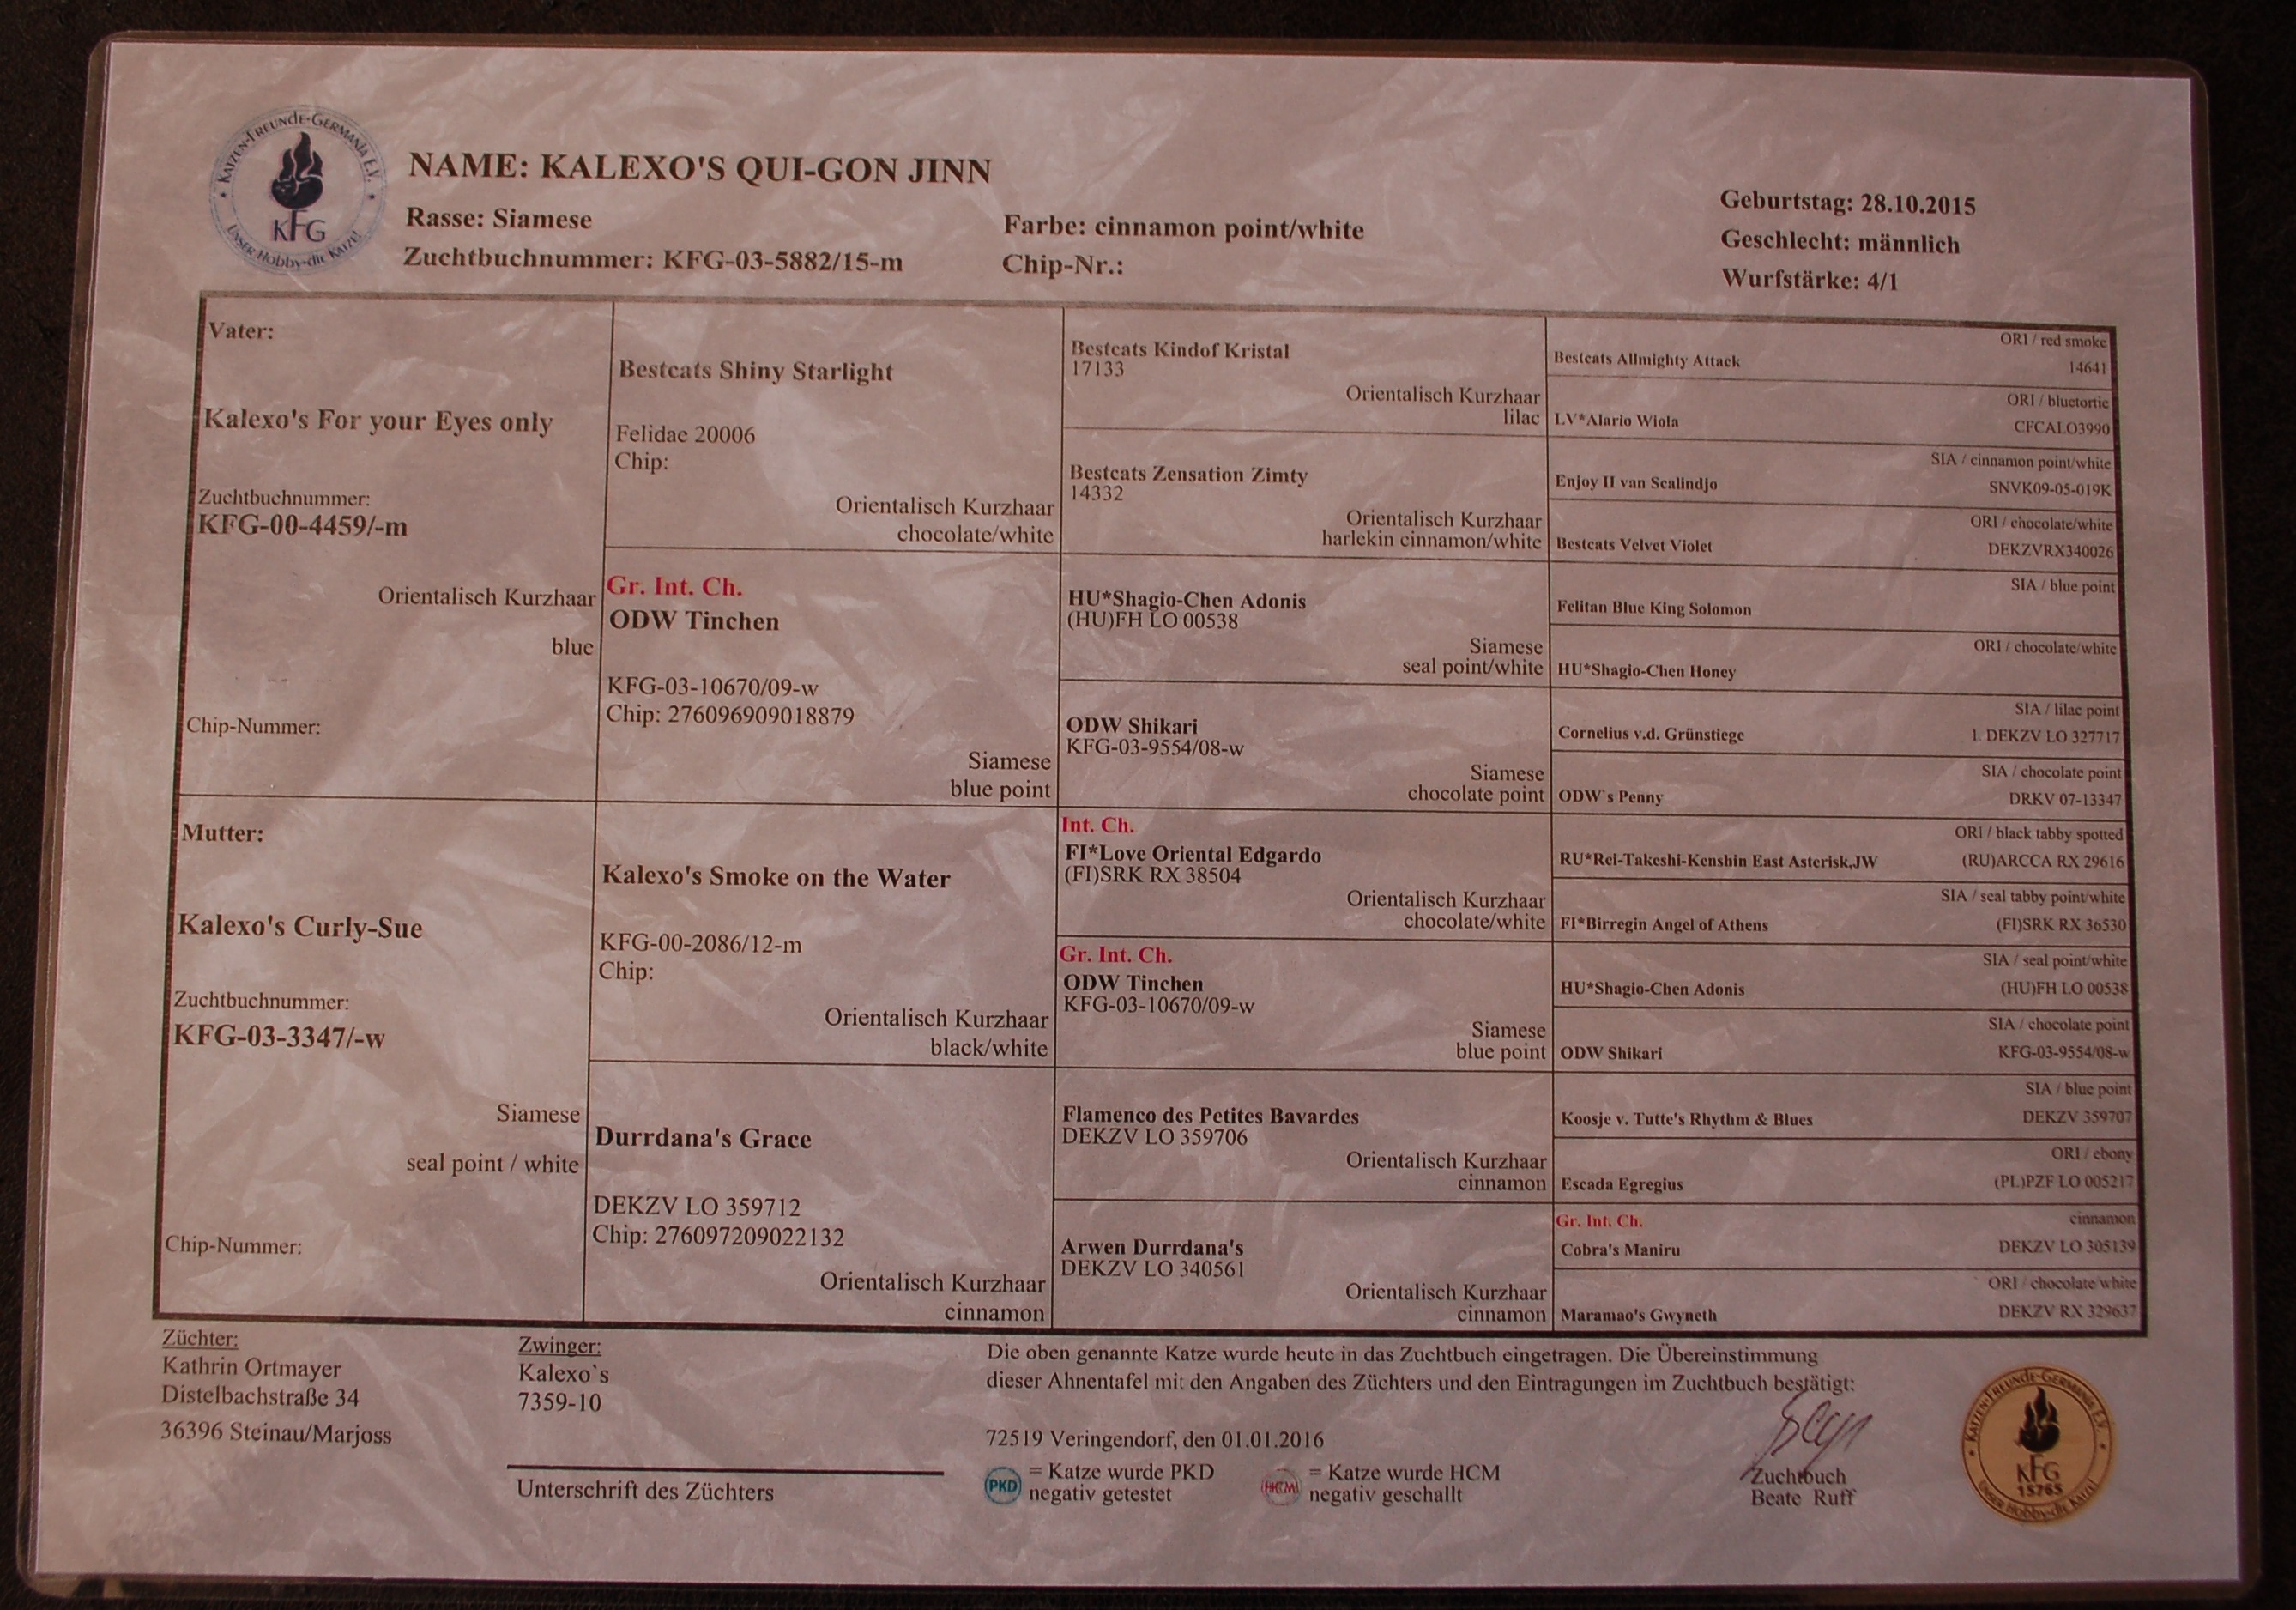 KATZEN-FREUNDE-GERMANIA E.V.
KFG
UNSER Hobby-die KATZE!
NAME: KALEXO'S QUI-GON JINN
Rasse: Siamese
Zuchtbuchnummer: KFG-03-5882/15-m
Farbe: cinnamon point/white
Chip-Nr.:
Geburtstag: 28.10.2015
Geschlecht: männlich
Wurfstärke: 4/1
Vater:
Kalexo's For your Eyes only
Zuchtbuchnummer:
KFG-00-4459/-m
Orientalisch Kurzhaar
blue
Chip-Nummer:
Mutter:
Kalexo's Curly-Sue
Zuchtbuchnummer:
KFG-03-3347/-w
Siamese
seal point / white
Chip-Nummer:
Bestcats Shiny Starlight
Felidae 20006
Chip:
Orientalisch Kurzhaar
chocolate/white
Gr. Int. Ch.
ODW Tinchen
KFG-03-10670/09-w
Chip: 276096909018879
Siamese
blue point
Kalexo's Smoke on the Water
KFG-00-2086/12-m
Chip:
Orientalisch Kurzhaar
black/white
Durrdana's Grace
DEKZV LO 359712
Chip: 276097209022132
Orientalisch Kurzhaar
cinnamon
Bestcats Kindof Kristal
17133
Orientalisch Kurzhaar
lilac
Bestcats Zensation Zimty
14332
Orientalisch Kurzhaar
harlekin cinnamon/white
HU*Shagio-Chen Adonis
(HU)FH LO 00538
Siamese
seal point/white
ODW Shikari
KFG-03-9554/08-w
Siamese
chocolate point
Int. Ch.
FI*Love Oriental Edgardo
(FI)SRK RX 38504
Orientalisch Kurzhaar
chocolate/white
Gr. Int. Ch.
ODW Tinchen
KFG-03-10670/09-w
Siamese
blue point
Flamenco des Petites Bavardes
DEKZV LO 359706
Orientalisch Kurzhaar
cinnamon
Arwen Durrdana's
DEKZV LO 340561
Orientalisch Kurzhaar
cinnamon
ORI / red smoke
Bestcats Allmighty Attack
14641
ORI / bluetortie
LV*Alario Wiola
CFCALO3990
SIA / cinnamon point/white
Enjoy II van Scalindjo
SNVK09-05-019K
ORI / chocolate/white
Bestcats Velvet Violet
DEKZVRX340026
SIA / blue point
Felitan Blue King Solomon
ORI / chocolate/white
HU*Shagio-Chen Honey
SIA / lilac point
Cornelius v.d. Grünstiege
1. DEKZV LO 327717
SIA / chocolate point
ODW`s Penny
DRKV 07-13347
ORI / black tabby spotted
RU*Rei-Takeshi-Kenshin East Asterisk,JW
(RU)ARCCA RX 29616
SIA / seal tabby point/white
FI*Birregin Angel of Athens
(FI)SRK RX 36530
SIA / seal point/white
HU*Shagio-Chen Adonis
(HU)FH LO 00538
SIA / chocolate point
ODW Shikari
KFG-03-9554/08-w
SIA / blue point
Koosje v. Tutte's Rhythm & Blues
DEKZV 359707
ORI / ebony
Escada Egregius
(PL)PZF LO 005217
Gr. Int. Ch.
cinnamon
Cobra's Maniru
DEKZV LO 305139
ORI / chocolate/white
Maramao's Gwyneth
DEKZV RX 329637
Züchter:
Kathrin Ortmayer
Distelbachstraße 34
36396 Steinau/Marjoss
Zwinger:
Kalexo`s
7359-10
Unterschrift des Züchters
Die oben genannte Katze wurde heute in das Zuchtbuch eingetragen. Die Übereinstimmung
dieser Ahnentafel mit den Angaben des Züchters und den Eintragungen im Zuchtbuch bestätigt:
72519 Veringendorf, den 01.01.2016
PKD = Katze wurde PKD
negativ getestet
HCM = Katze wurde HCM
negativ geschallt
Zuchtbuch
Beate Ruff
KATZEN-FREUNDE-GERMANIA E.V.
KFG
15765
UNSER Hobby-die KATZE!